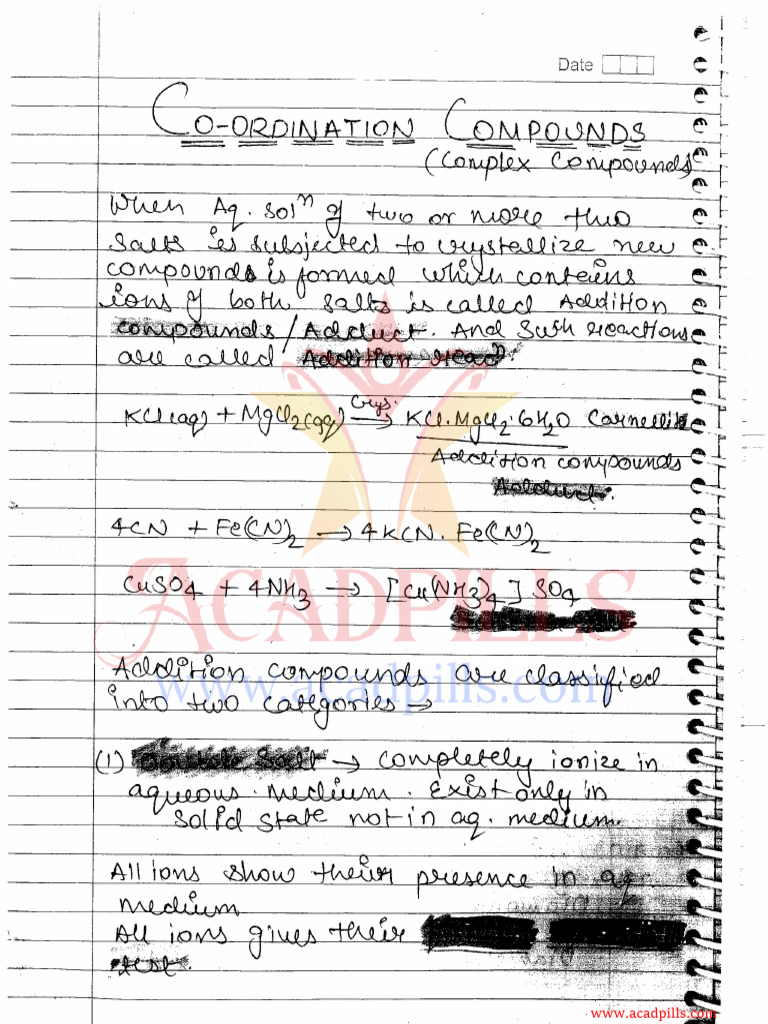 Date
CO-ORDINATION COMPOUNDS
(Complex Compounds)
When Aq. solⁿ of two or more than
salts is subjected to crystallize new
compounds is formed which contains
ions of both salts is called Addition
compounds/Adduct. And such reactions
are called Addition reacⁿ.
KCl(aq) + MgCl₂(aq) —Crys.→ KCl.MgCl₂.6H₂O Carnellite
Addition compounds
Adduct.
4CN + Fe(CN)₂ → 4KCN.Fe(CN)₂
CuSO₄ + 4NH₃ → [Cu(NH₃)₄]SO₄
ACADPILLS
Addition compounds are classified
www.acadpills.com
into two categories →
(1) Double Salt → completely ionize in
aqueous medium. Exist only in
solid state not in aq. medium.
All ions show their presence in aq.
medium
All ions gives their
test.
www.acadpills.com